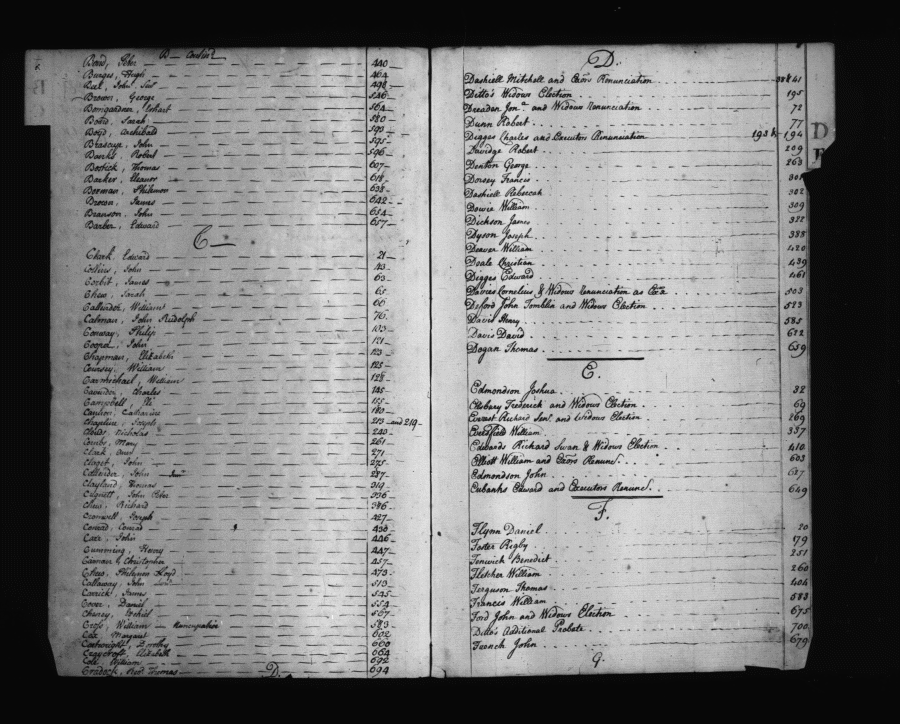 B - Contind
Bond, Peter 440
Burges, Hugh 464
Bull, John Sen 498
Brown, George 546
Bomgardner, Erhart 564
Botts, Sarah 580
Boyd, Archibald 593
Brascup, John 595
Banks, Robert 596
Bostick, Thomas 607
Barker, Eleanor 618
Boeman, Philemon 638
Brown, James 642
Branson, John 654
Barber, Edward 657
C
Clark, Edward 21
Collins, John 43
Corbit, James 63
Chew, Sarah 65
Callender, William 66
Calman, John Rudolph 76
Conway, Philip 103
Cooper, John 121
Chapman, Elizabeth 123
Coursey, William 125
Carmichael, William 128
Gaunder, Charles 145
Campbell 155
Cannon, Catharine 180
Chaplin, Joseph 213 and 219
Childs, Nicholas 240
Combs, Mary 261
Clark, Ann 271
Claget, John 275
Callender, John 287
Clayland, Thomas 319
Clignett, John Peter 336
Chew, Richard 346
Cromwell, Joseph 427
Conrad, Conrad 430
Carr, John 446
Cumming, Henry 447
Cayman, Christopher 457
Chew, Philemon Lloyd 473
Callaway, John 513
Carrick, James 545
Cover, Daniel 554
Cheney, Ezekiel 567
Cross, William - Manumission 583
Cox, Margaret 602
Cartwright, Dorothy 660
Craycroft, Elizabeth 664
Cole, William 692
Cradock, Revd. Thomas 694
D.
D.
Dashiell Mitchell and Exors Renunciation 41
Ditto's Widows Election 195
Dreaden Jona. and Widows Renunciation 72
Dunn Robert 77
Digges Charles and Executors Renunciation 193 & 194
Davidge Robert 209
Denton George 263
Dorsey Francis 301
Dashiell Rebeccah 302
Dowie William 309
Dickson James 322
Dyson Joseph 388
Deaver William 420
Deale Christian 439
Digges Edward 461
Davies Cornelius & Widows Renunciation as Exx 503
Deford John Tomblin and Widows Election 523
David Henry 585
Davis David 622
Dogan Thomas 659
E.
Edmondson Joshua 32
Elsbury Frederick and Widows Election 69
Everest Richard Senr. and Widows Election 269
William 337
Edwards Richard Swan & Widows Election 410
Elliott William and Exors Renunc. 603
Edmondson John 627
Eubanks Edward and Executors Renunc. 649
F.
Flynn Daniel 20
Foster Rigby 79
Fenwick Benedict 251
Fletcher William 260
Ferguson Thomas 404
Francis William 583
Ford John and Widows Election 675
Ditto's Additional Probate 700
French John 679
G.
D
E